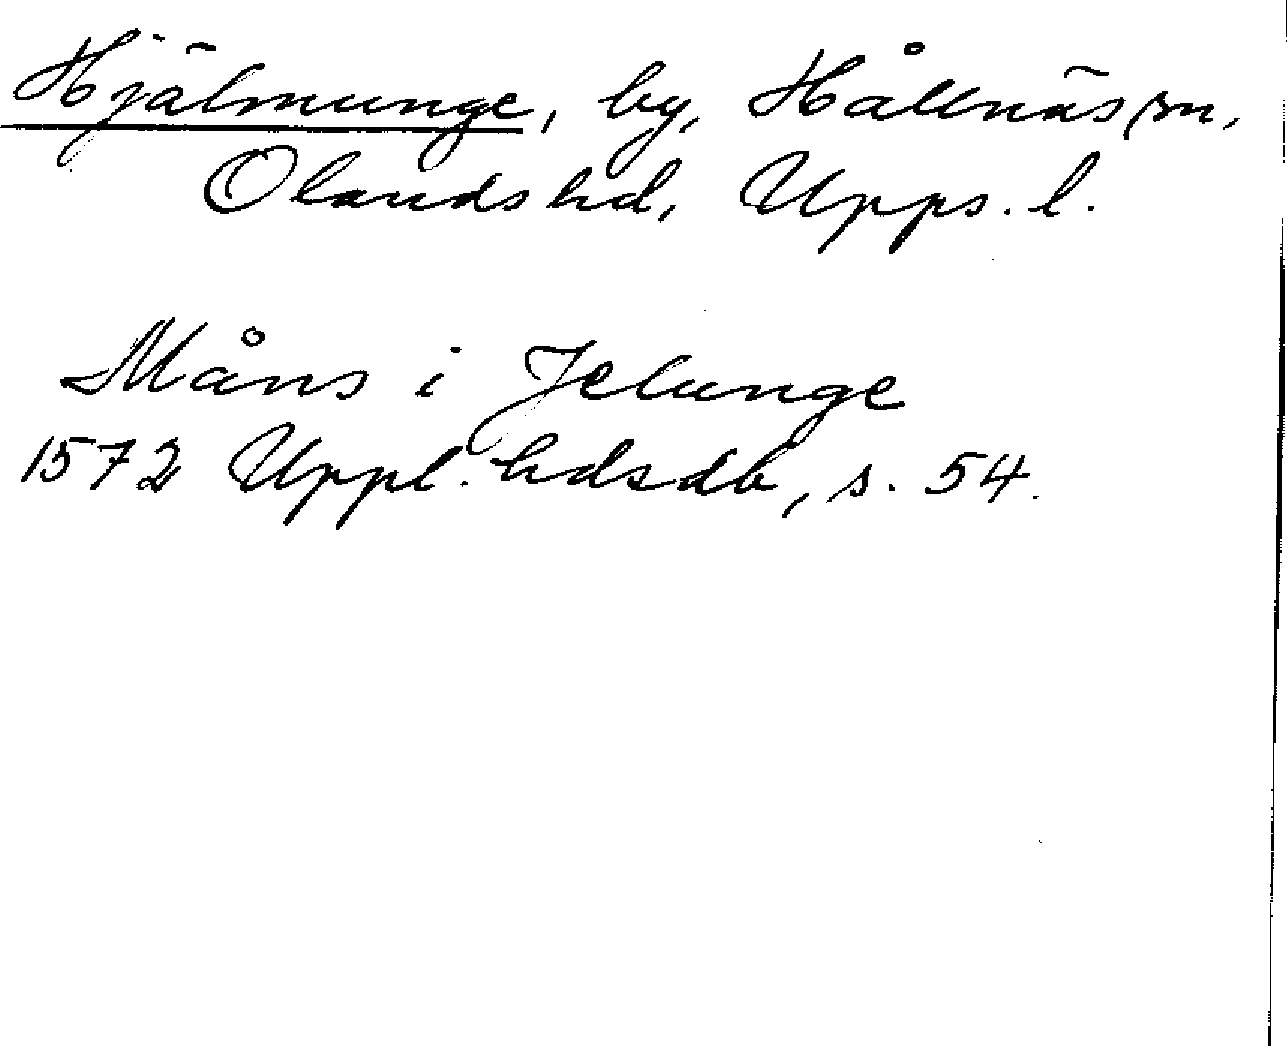 Hjälmunge, by, Hållnäs sn,
Olands hd, Upps. l.
Måns i Jelunge
1572 Uppl. hdsdb, s. 54.